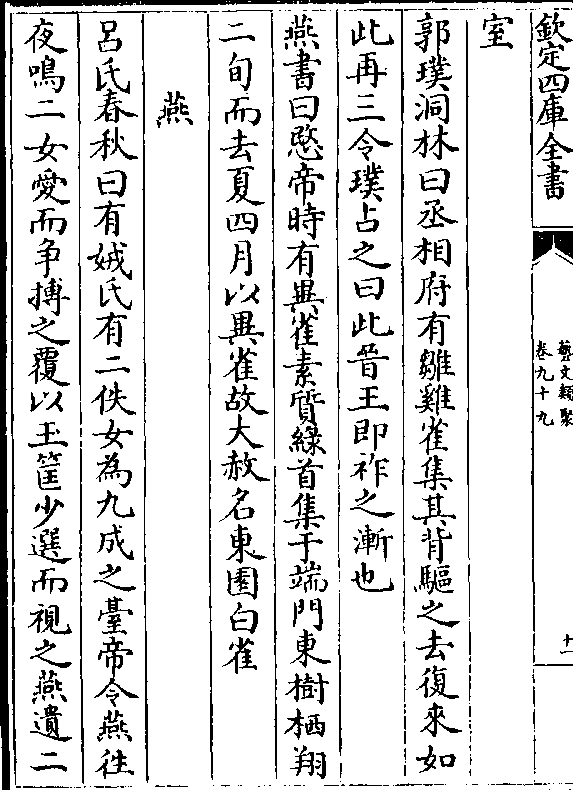 欽定四庫全書
藝文類聚
卷九十九
十一
室
郭璞洞林曰丞相府有雛雞雀集其背驅之去復來如
此再三令璞占之曰此晉王即祚之漸也
燕書曰愍帝時有異雀素質綠首集于端門東樹栖翔
二旬而去夏四月以異雀故大赦名東園白雀
燕
呂氏春秋曰有娀氏有二佚女為九成之臺帝令燕往
夜鳴二女愛而争搏之覆以玉筐少選而視之燕遺二